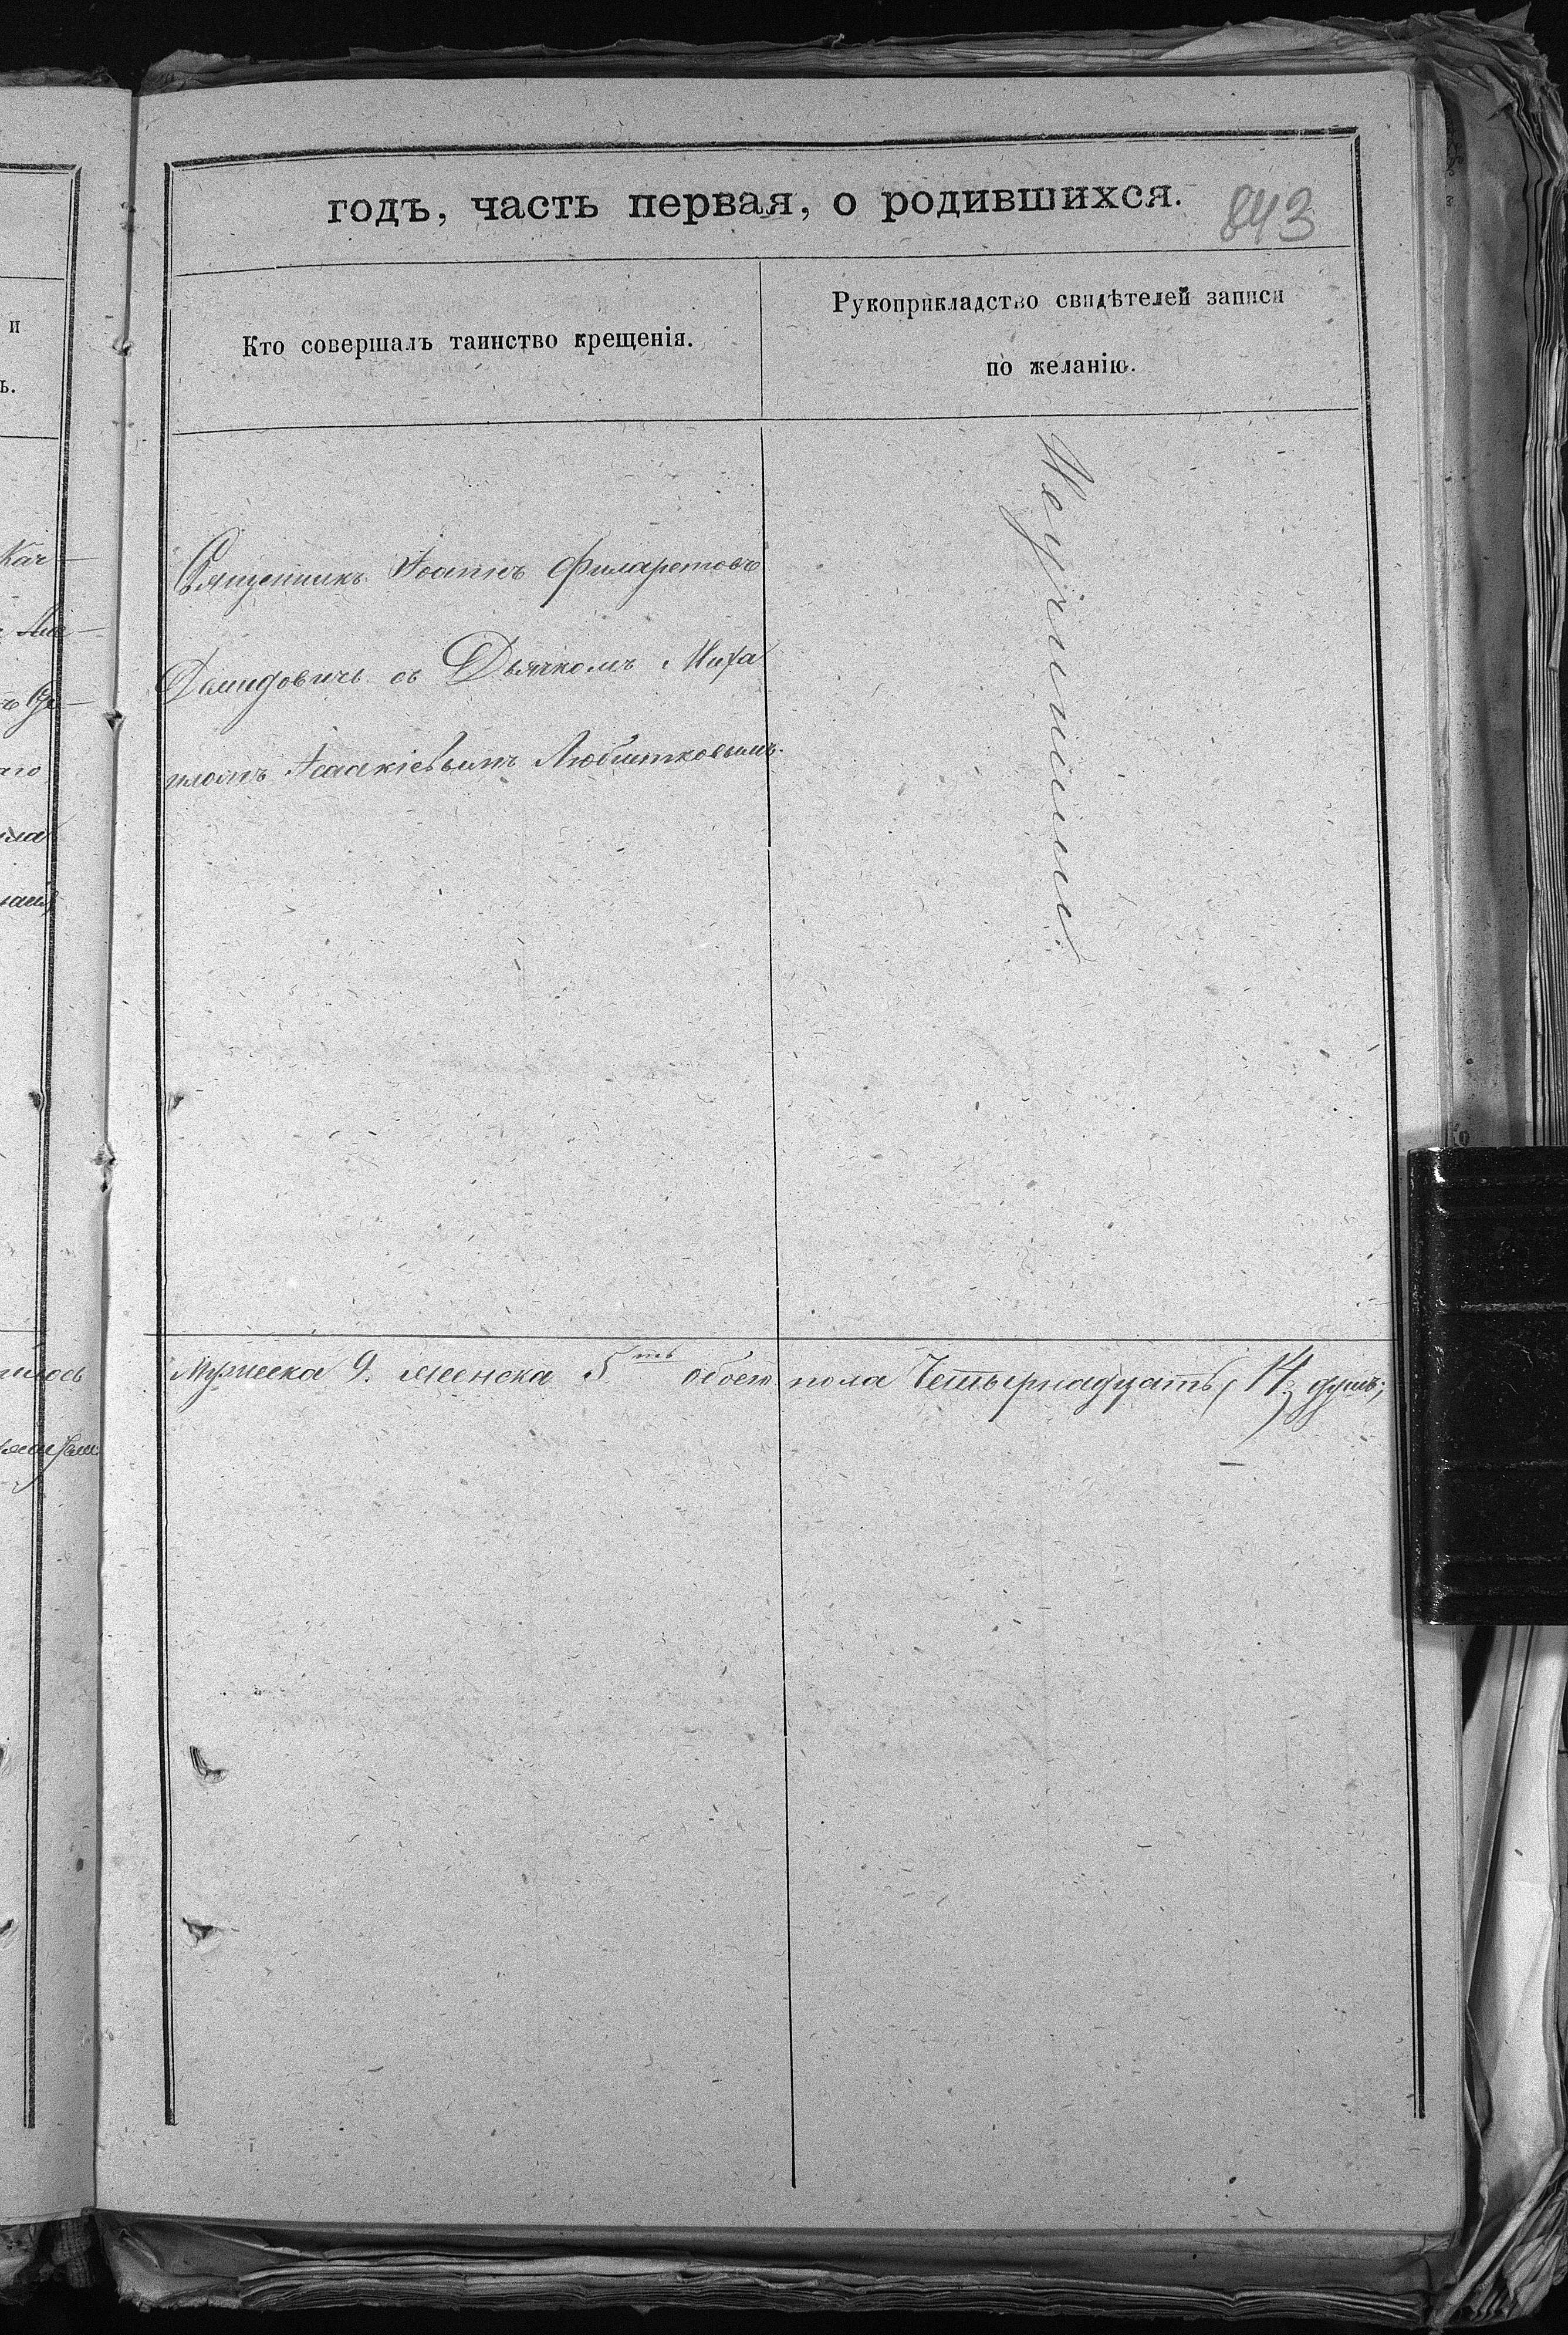 годъ, часть первая, о родившихся. 843
Кто совершалъ таинство крещенія.
Рукоприкладство свидѣтелей записи
по желанію.
Священникъ Іоаннъ Филаретовъ
Демидовичъ съ Дьячкомъ Миха
иломъ Исаакіевымъ
Неграмотны
Мужеска 9. женска 5ть обоего пола Четырнадцать (14) душъ;